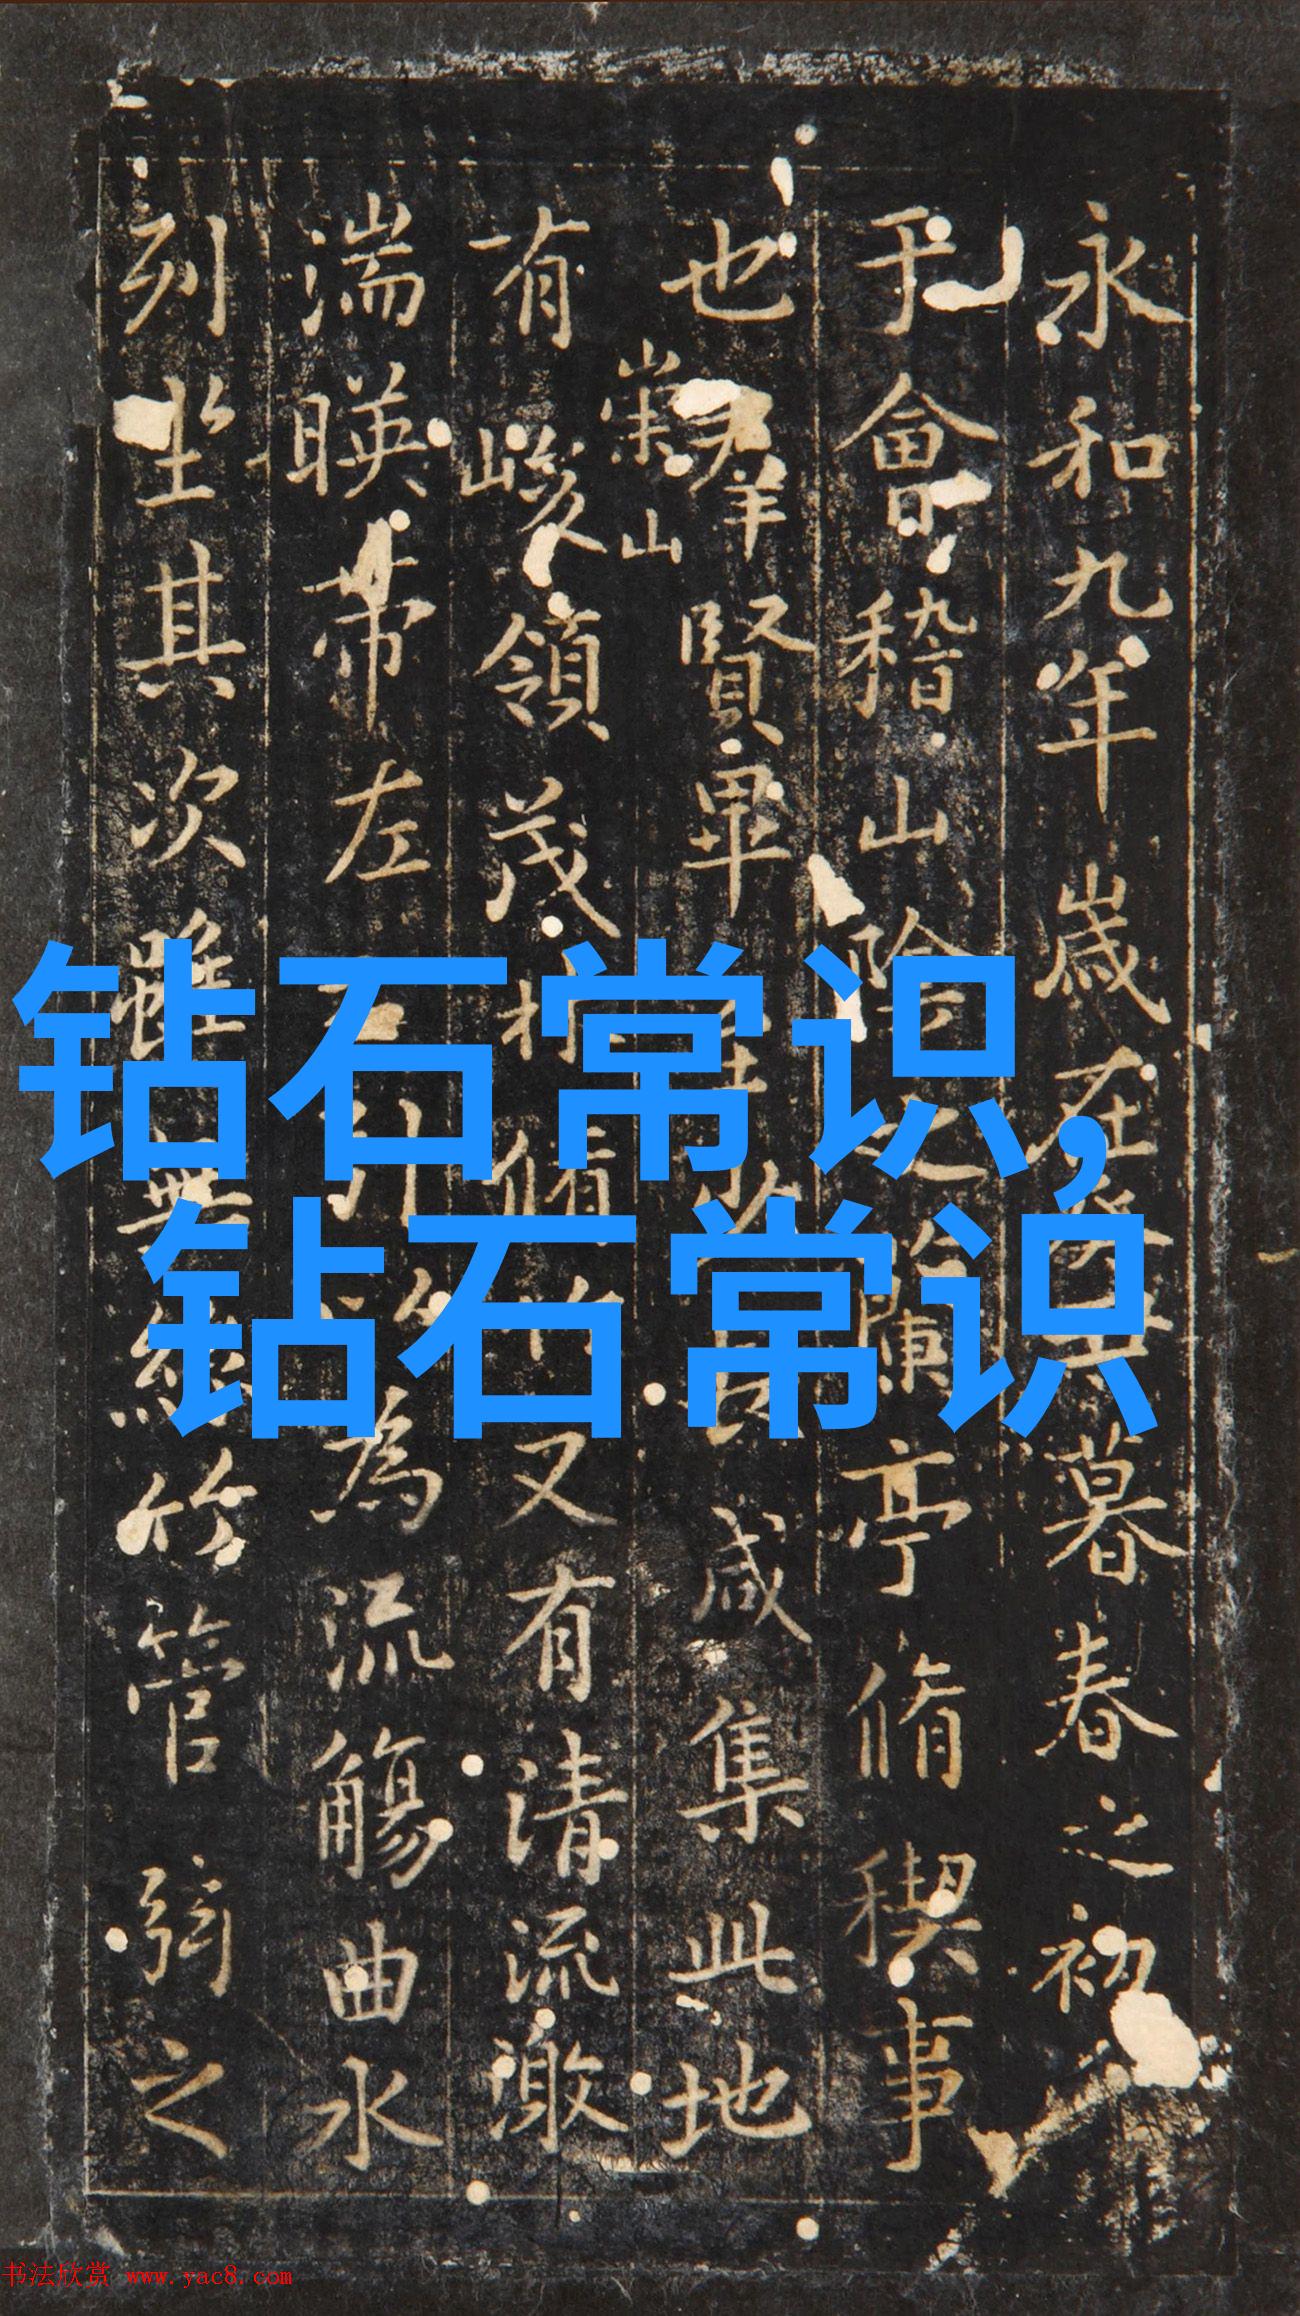 永和九年歲在癸丑暮春之初
于會稽山陰之蘭亭脩稧事
也羣賢畢至少長咸集此地
崇山
有峻領茂林脩竹又有清流激
湍暎帶左右引以為流觴曲水
列坐其次雖無絲竹管弦之
钻石常识,
钻石常识
书法欣赏 www.yac8.com